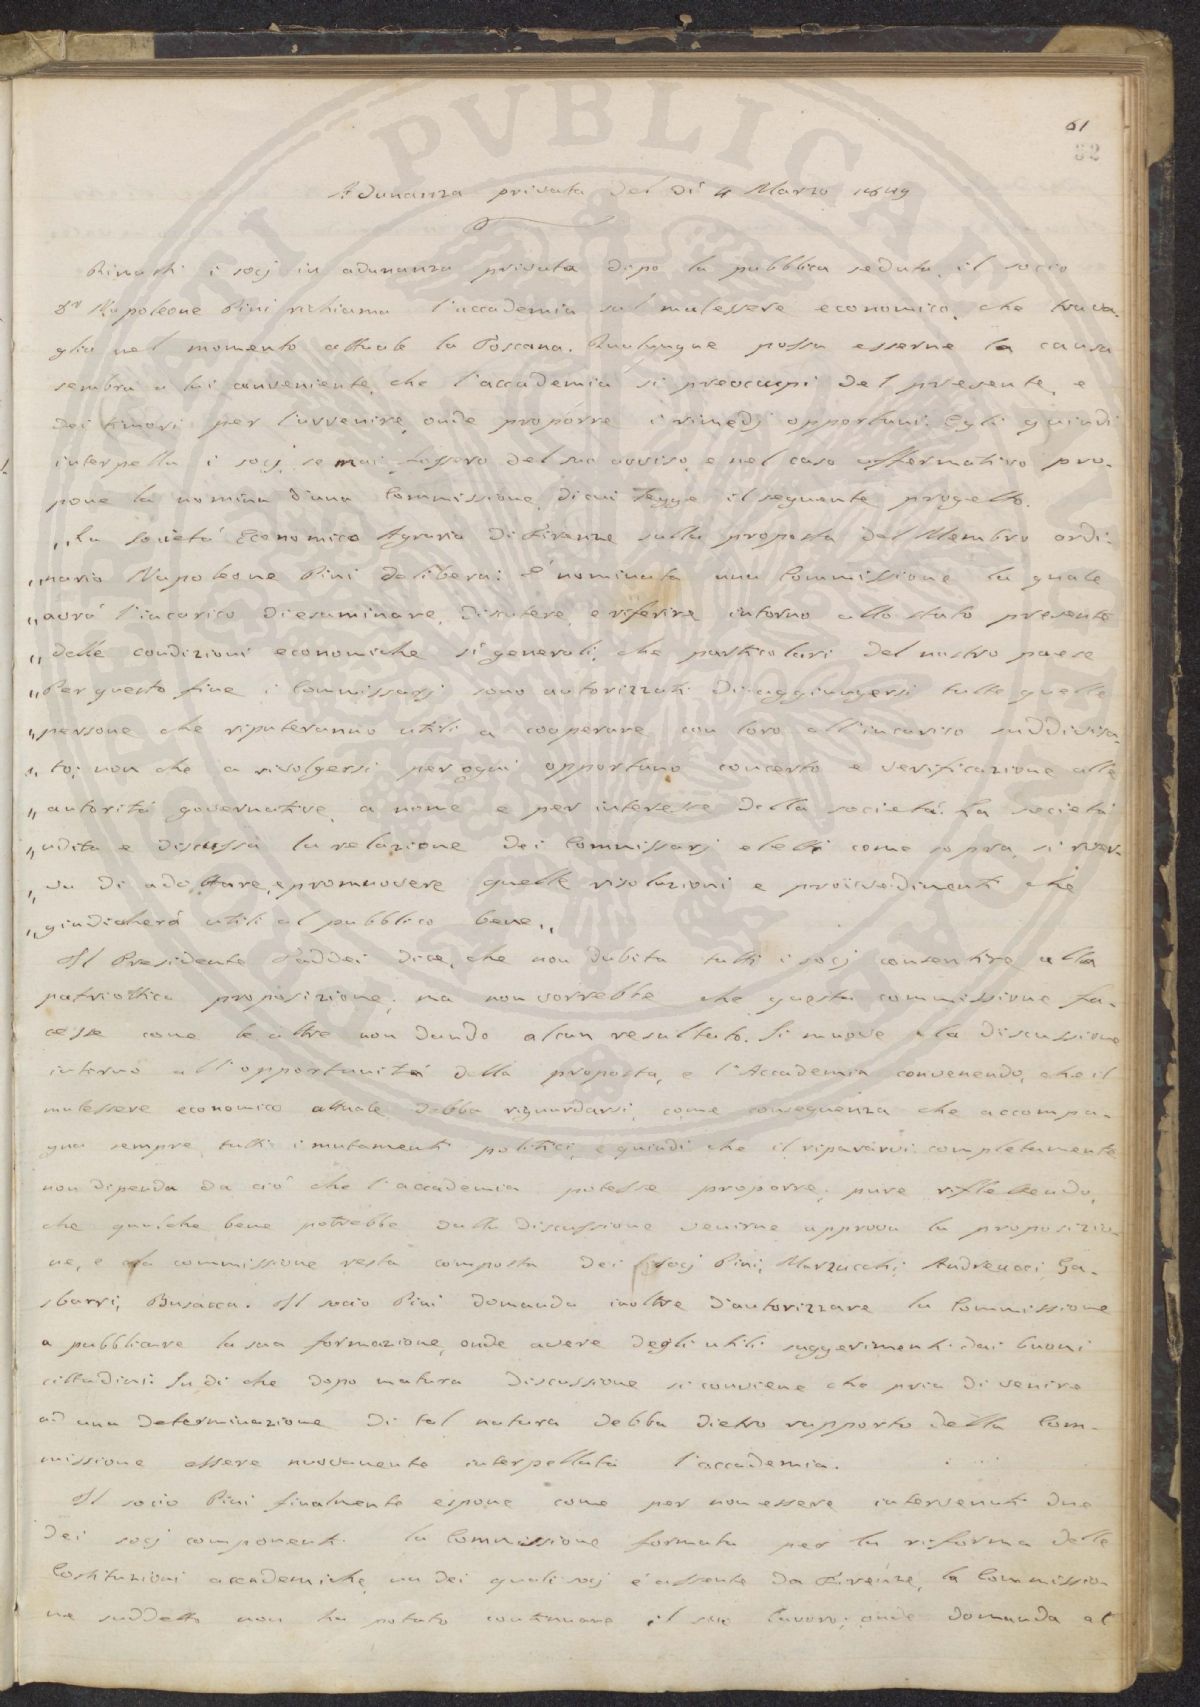 61
62
Adunanza privata del dì 4 Marzo 1849
Rimasti i socj in adunanza privata dopo la pubblica seduta, il socio
Dr Napoleone Pini richiama l'accademia sul malessere economico, che trava-
glia nel momento attuale la Toscana. Qualunque possa esserne la causa
sembra a lui conveniente, che l'accademia si preoccupi del presente, e
dei timori per l'avvenire, onde proporre i rimedj opportuni. Egli quindi
interpella i socj, se mai fossero del suo avviso, e nel caso affermativo pro-
pone la nomina d'una Commissione, di cui legge il seguente progetto.
„La Società Economico Agraria di Firenze sulla proposta del Membro ordi-
„nario Napoleone Pini delibera: È nominata una Commissione la quale
„avrà l'incarico di esaminare, discutere, e riferire intorno allo stato presente
„delle condizioni economiche sì generali, che particolari del nostro paese
„Per questo fine i Commissarj sono autorizzati di aggiungersi tutte quelle
„persone che riputeranno utili a cooperare con loro all'incarico suddivisa-
„to; non che a rivolgersi per ogni opportuno concerto e verificazione alle
„autorità governative, a nome e per interesse della società. La società
„udita e discussa la relazione dei Commissarj eletti come sopra, si riser-
„va di adottare, e promuovere quelle risoluzioni e provvedimenti che
„giudicherà utili al pubblico bene„
Il Presidente Taddei dice, che non dubita tutti i socj consentire alla
patriottica proposizione; ma non vorrebbe che questa commissione fa-
cesse come le altre non dando alcun resultato. Si muove la discussione
intorno all'opportunità della proposta, e l'Accademia convenendo, che il
malessere economico attuale debba riguardarsi, come conseguenza che accompa-
gna sempre tutti i mutamenti politici, e quindi che il ripararvi completamente
non dipenda da ciò che l'accademia potesse proporre; pure riflettendo,
che qualche bene potrebbe dalla discussione venirne approva la proposizio
ne, e la commissione resta composta dei socj Pini, Marzucchi, Andreucci, Ga-
sbarri, Busacca. Il socio Pini domanda inoltre d'autorizzare la Commissione
a pubblicare la sua formazione, onde avere degli utili suggerimenti dai buoni
cittadini: Su di che dopo matura discussione si conviene che pria di venire
ad una determinazione di tal natura debba dietro rapporto della Com-
missione essere nuovamente interpellata l'accademia.
Il socio Pini finalmente espone come per non essere intervenuti due
dei socj componenti la Commissione formata per la riforma delle
Costituzioni accademiche, un dei quali socj è assente da Firenze, la Commissio
ne suddetta non ha potuto continuare il suo lavoro; onde domanda al